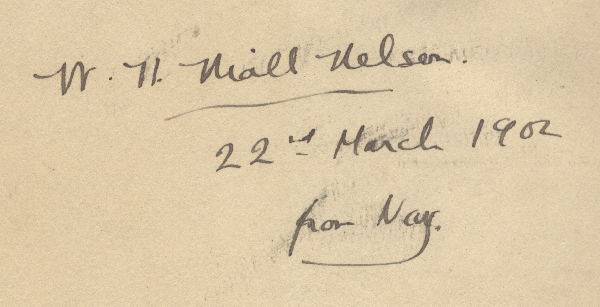 W. H. Niall Nelson.
22nd March 1902
from Nay.